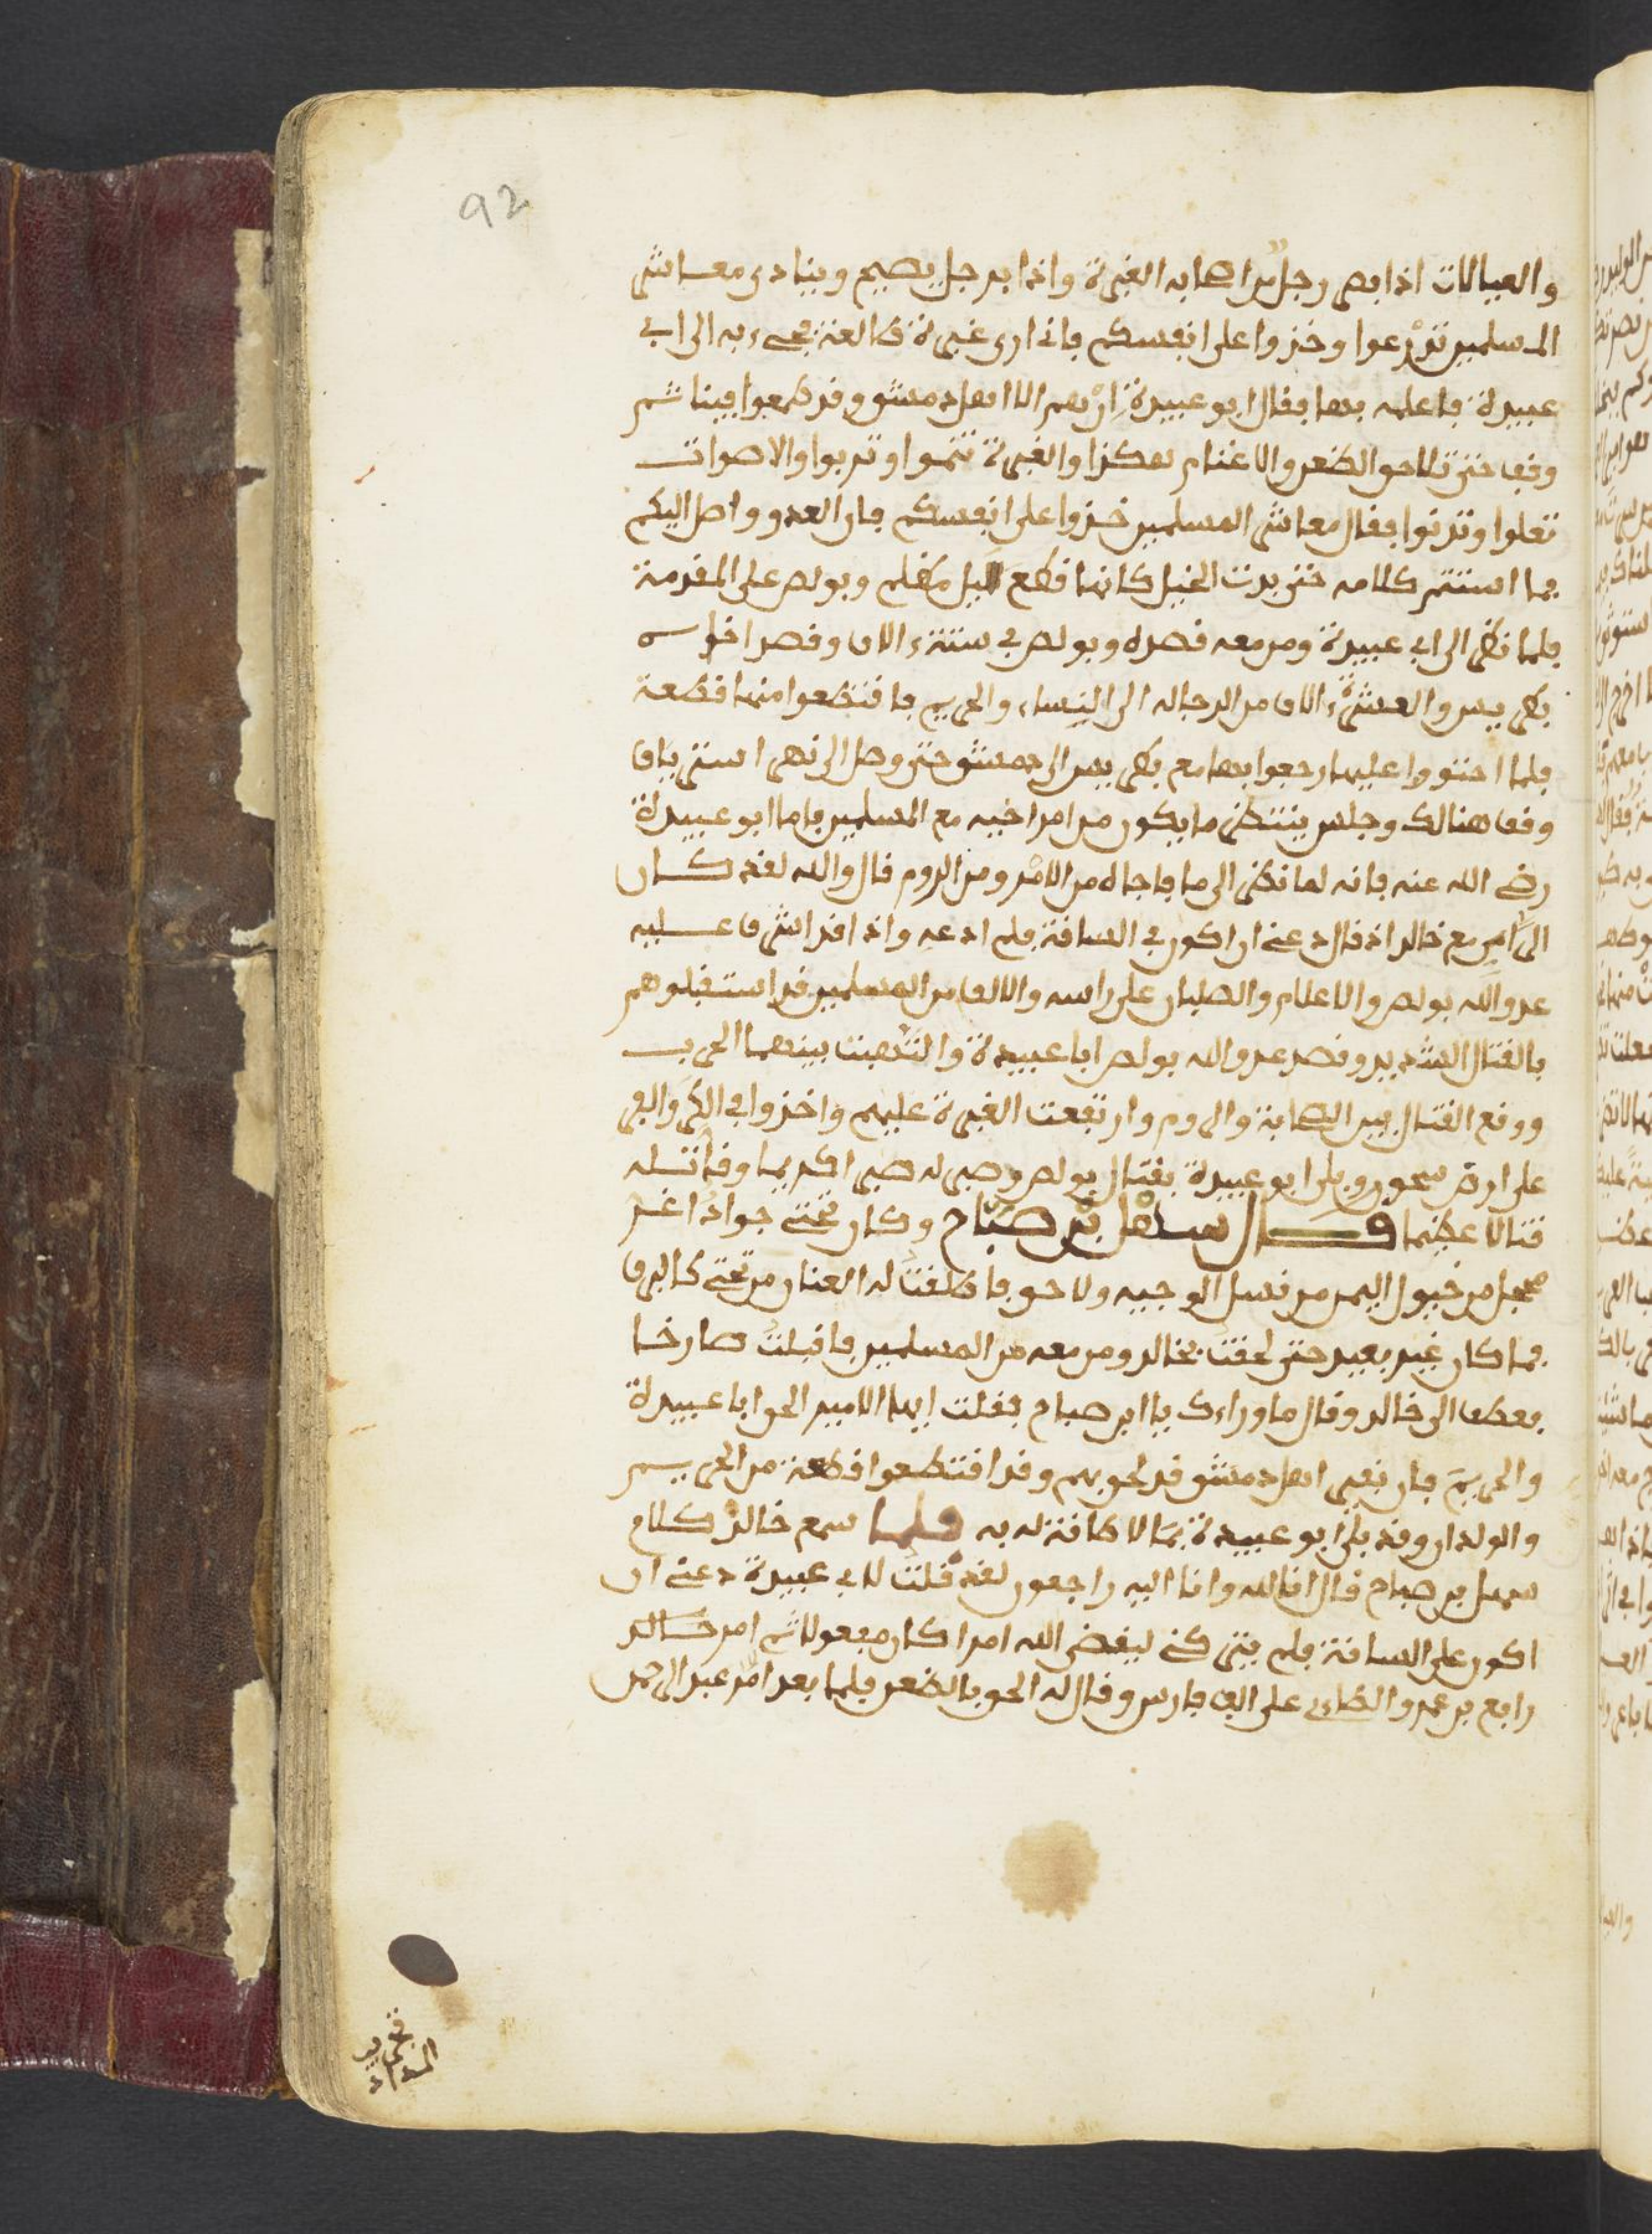 92
والعيالات اذا بصر رجل من اصحابه الغبرة واذا برجل يصيح وينادي معاشر
المسلمين تدرعوا وخذوا على انفسكم فاني ارى غبرة طالعة فجيء به الى ابي
عبيدة فاعلمه بها فقال ابو عبيدة ان هم الا اهل دمشق وقد طمعوا فينا ثم
وقف حتى تلاحق الظعن والاغنام هكذا والغبرة تنموا وتربوا والاصوات
تعلوا وتدنوا فقال معاشر المسلمين خذوا على انفسكم فان العدو واصل اليكم
فما استتم كلامه حتى بدت الخيل كانها قطع ليل مظلم وبولص على المقدمة
فلما نظر الى ابي عبيدة ومن معه قصده وبولص في ستة ءالاف وقصد اخوه
بطرس والعشرة ءالاف من الرجالة الى النساء والحريم فاقتطعوا منها قطعة
فلما احتووا عليها رجعوا بها مع بطرس الى دمشق حتى وصل الى نهر استرياق
وقف هنالك وجلس ينتظر ما يكون من امر اخيه مع المسلمين فاما ابو عبيدة
رضي الله عنه فانه لما نظر الى ما فاجاه من الامر ومن الروم قال والله لقد كان
الراي مع خالد اذ قال دعني ان اكون في الساقة فلم ادعه واذا قد اشرف عليه
عدو الله بولص والاعلام والصلبان على راسه والالف من المسلمين قد استقبلوهم
بالقتال الشديد وقصد عدو الله بولص ابا عبيدة والتهبت بينهما الحرب
ووقع القتال بين الصحابة والروم وارتفعت الغبرة عليهم واخذوا في الكر والفر
على ارض سحور وبلي ابو عبيدة بقتال بولص وصبر له صبرا كريما وقاتله
قتالا عظيما قال سهل بن صباح وكان تحتي جواد اغر
محجل من خيول اليمن من نسل الوجيه ولاحق فاطلقت له العنان من تحتي كالبرق
فما كان غير بعيد حتى لحقت بخالد ومن معه من المسلمين فاقبلت صارخا
فعطف الي خالد وقال ما وراءك يا ابن صباح فقلت ايها الامير الحق ابا عبيدة
والحريم فان نفير اهل دمشق قد لحق بهم وقد اقتطعوا قطعة من الحريم
والولدان وقد بلي ابو عبيدة بما لا طاقة له به فلما سمع خالد كلام
سهل بن صباح قال انا لله وانا اليه راجعون لقد قلت لابي عبيدة دعني ان
اكون على الساقة فلم يتركني ليقضي الله امرا كان مفعولا ثم امر خالد
رافع بن عمرو الطاءي على الف فارس وقال له الحق بالظعن فلما بعد امر عبد الرحمن